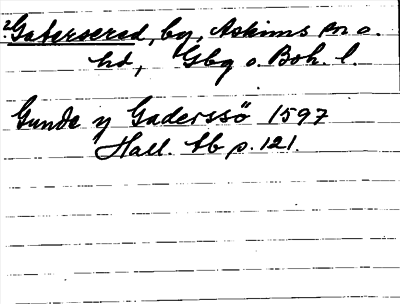 2Gaterserad, by, Askims sn o.
hd, Gbg o. Boh. l.
Gunde y Gaderssö 1597
Hall. tb p. 121.